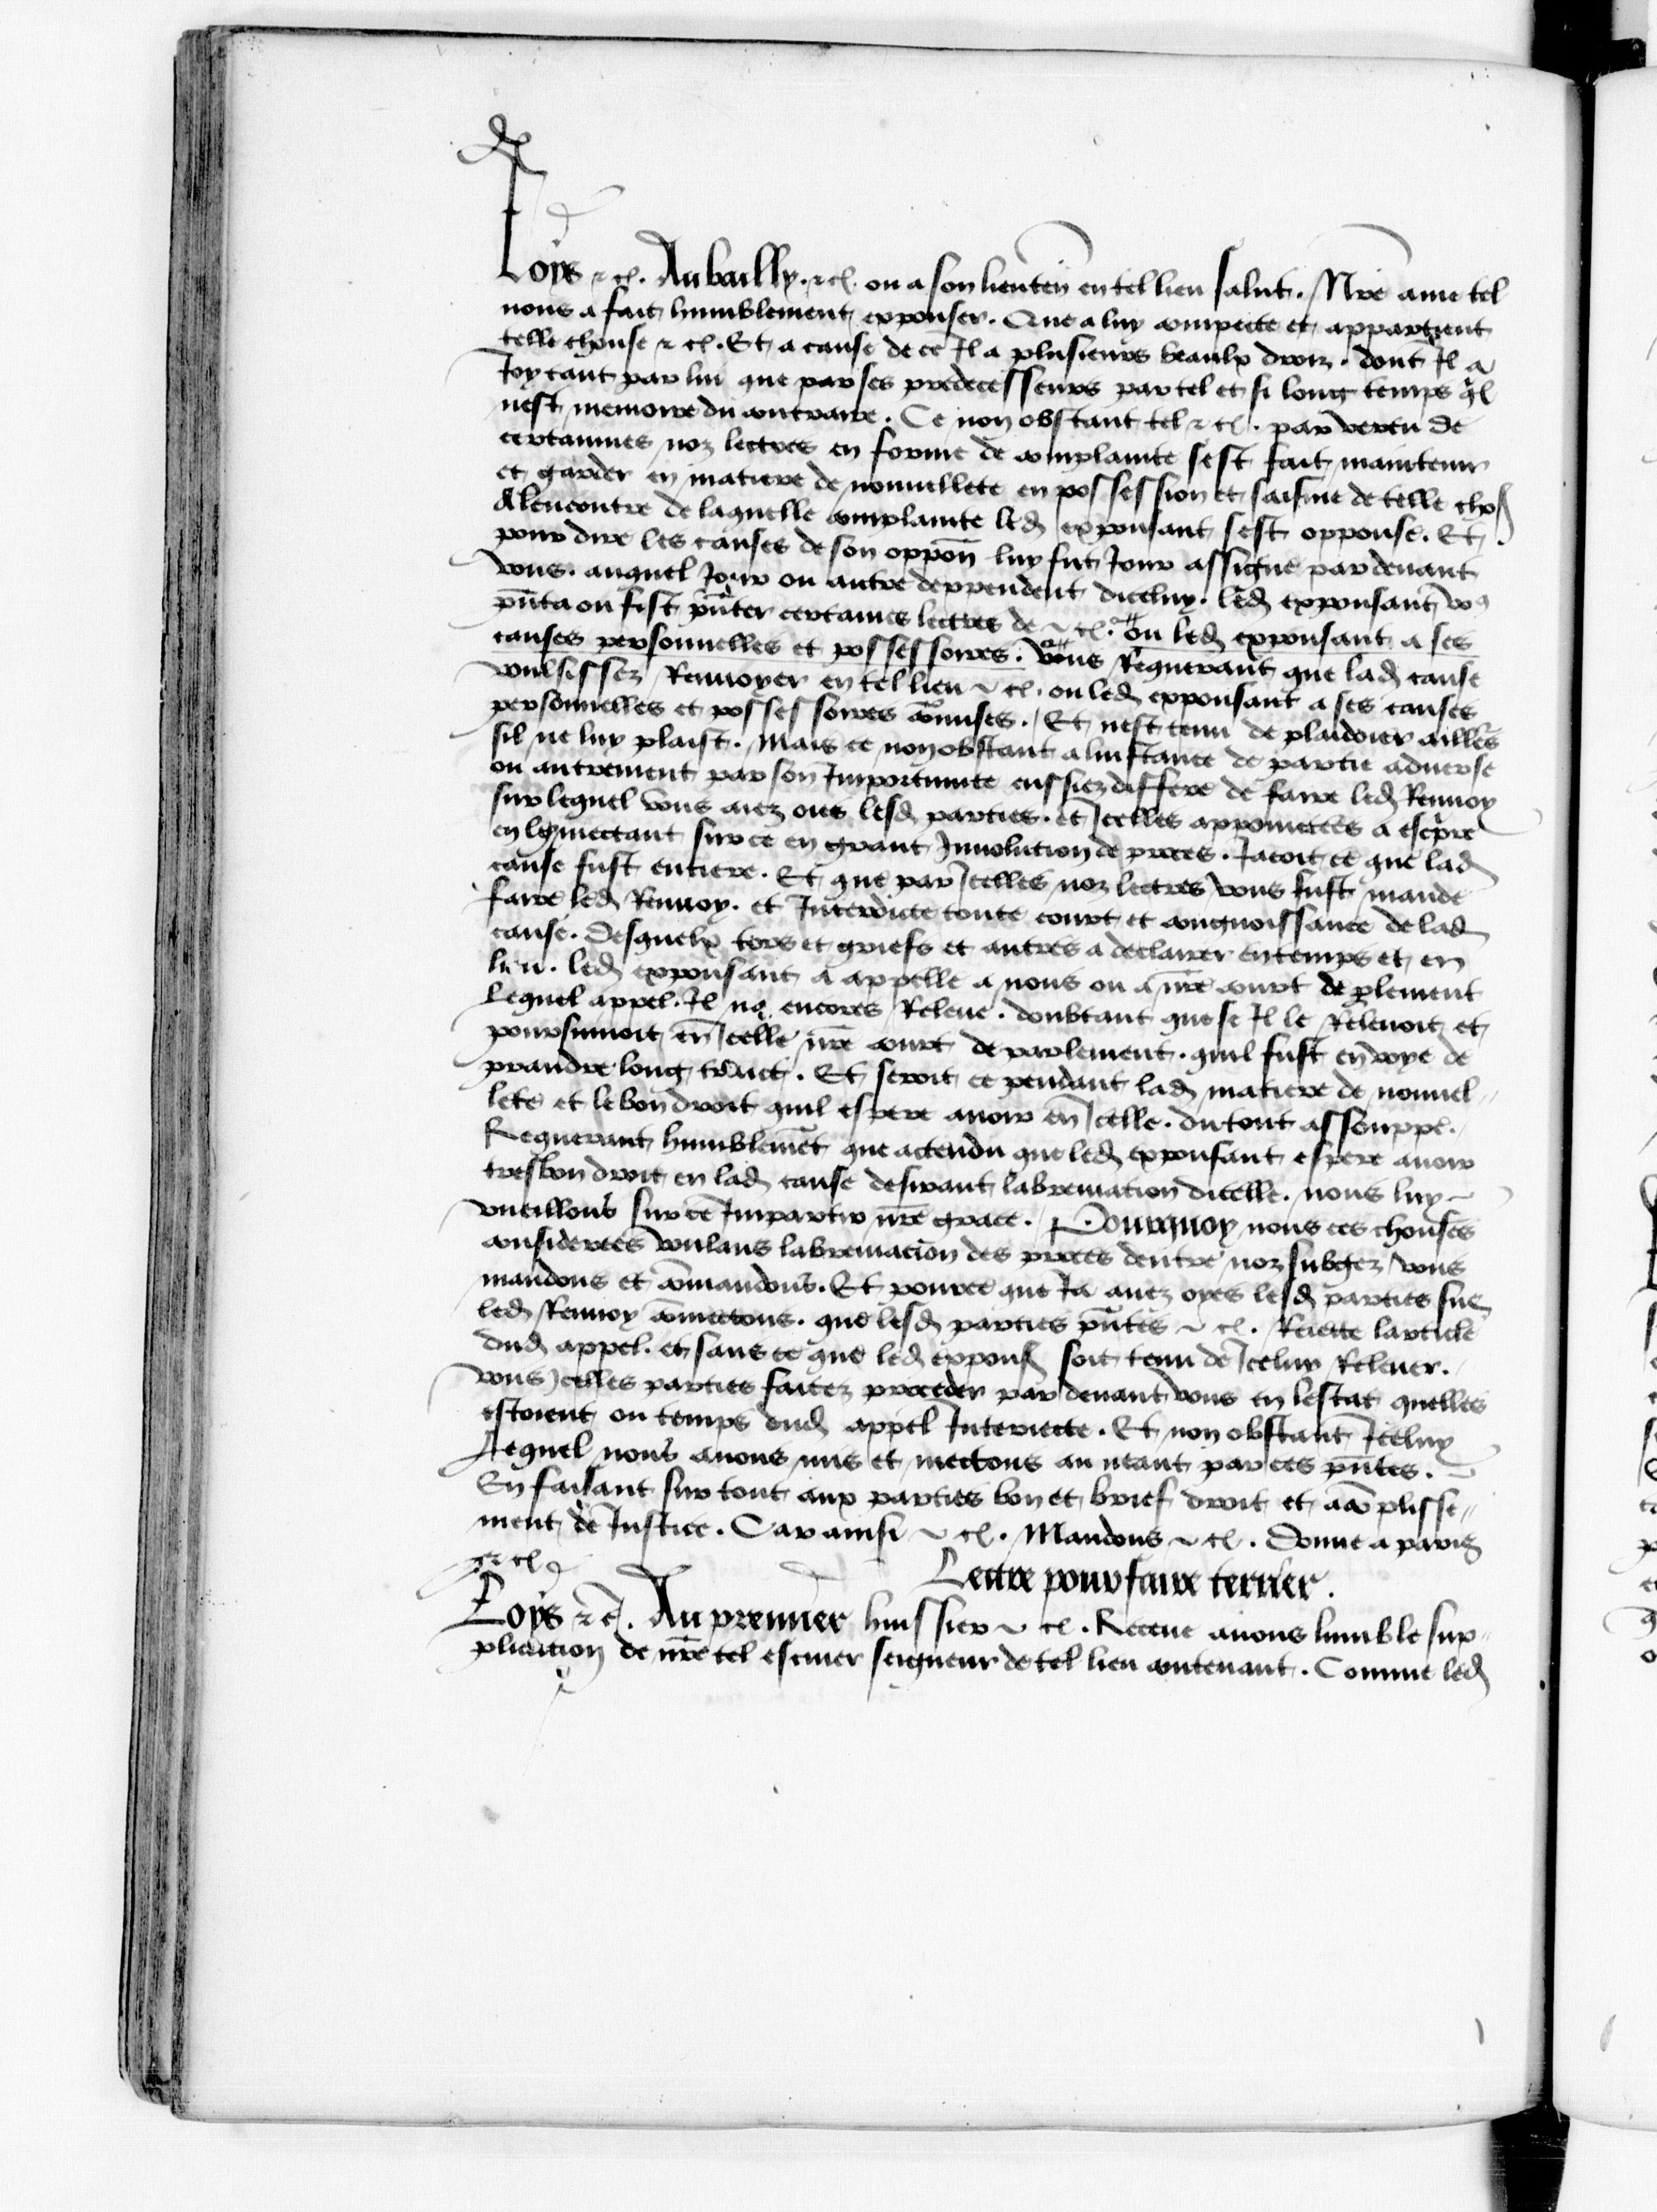 Loys & c̃. Au bailly. & c̃. ou a son lieuten̄ en tel lieu salut. Nr̄e ame tel
nous a fait humblement expouser. Que a luy compecte et appartient
telle chouse & c̃. Et a cause de ce Il a plusieurs beaulx droiz. dont Il a
Joy tant par lui que par ses predecesseurs par tel et si long temps q̃l
nest memoire du contraire. Ce non obstant tel & c̃. par vertu de
certaines noz lectres en forme de complainte sest fait maintenir
et garder en matiere de nouvellete en possession et saisine de telle chos̃
A lencontre de laquelle complainte led̃ expousant sest oppouse. Et
pour dire les causes de son oppon̄ luy fut Jour assigne par devant
vous. auquel Jour ou autre deppendent diceluy. led̃ expousant vo9
pn̄ta ou fist pn̄ter certaines lectres de & c̃. ou led̃ expousant a ses
causes personnelles et possessoires. Vous Requerant que lad̃ cause
voulsissez Renvoyer en tel lieu & c̃. ou led̃ expousant a ses causes
personnelles et possessoires cōmises. Et nest tenu de plaidoier ailleurs
sil ne luy plaist. Mais ce nonobstant a linstance de partie adverse
ou autrement par son Importunite eussiez differe de faire led̃ Renvoy
sur lequel vous aiez ouy lesd̃ parties. et Icelles appoinctees a escpre
en les mectant sur ce en grant Involution de proces. Jacoit ce que lad̃
cause fust entiere. Et que par Icelles noz lectres vous fust mande
faire led̃ Renvoy. et Interdicte toute court et congnoissance de lad̃
cause. Desquelx tors et griefs et autres a declairer en temps et en
lieu. led̃ expousant a appelle a nous ou a nr̄e court de plement
Lequel appel. Il na encores Releve. doubtant que se Il le Relevoit et
poursuivoit en Icelle nr̄e court de parlement. quil fust en voye de
prandre long traict. Et seroit ce pendant lad̃ matiere de nouvel„
lete et le bon droit quil espere avoir en Icelle. du tout assouppe.
Requerant humblemēt que actendu que led̃ expousant espere avoir
tresbon droit en lad̃ cause desirant labreviation dicelle. nous luy
vueillons sur ce Impartir nr̄e grace. Pourquoy nous ces chouses
considerees voulans labreviacion des proces dentre noz subgez vous
mandons et cōmandons. Et pource que Ja avez oyes lesd̃ parties sur
led̃ Renvoy cōmectons. que lesd̃ parties pn̄tes & c̃. Reiette larticle
dud̃ appel. et sans ce que led̃ expous̃ soit tenu de Icelui Relever.
vous Icelles parties faites proceder par devant vous en lestat quelles
estoient ou temps dud̃ appel Interiecte. Et non obstant Iceluy
Lequel nous avons mis et mectons au neant par ces pn̄tes.
En faisant sur tout aux parties bon et brief droit et acōplisse„
ment de Justice. Car ainsi & c̃. Mandons & c̃. Donne a paris
& c̃
Lectre pour faire terrier.
Loys & c̃. Au premier huissier & c̃. Receue avons lumble sup„
plicacion de nr̄e tel escuier seigneur de tel lieu contenant. Comme led̃